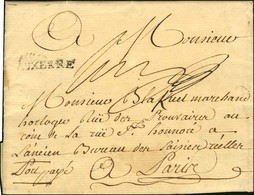 A Monsieur
AUXERRE
Monsieur Blaquel marchand
horloger Rüe des Prouvaires au
coin de la rüe St honnoré a
Lancien Bureau des Saisies reelles
Port payé
A Paris